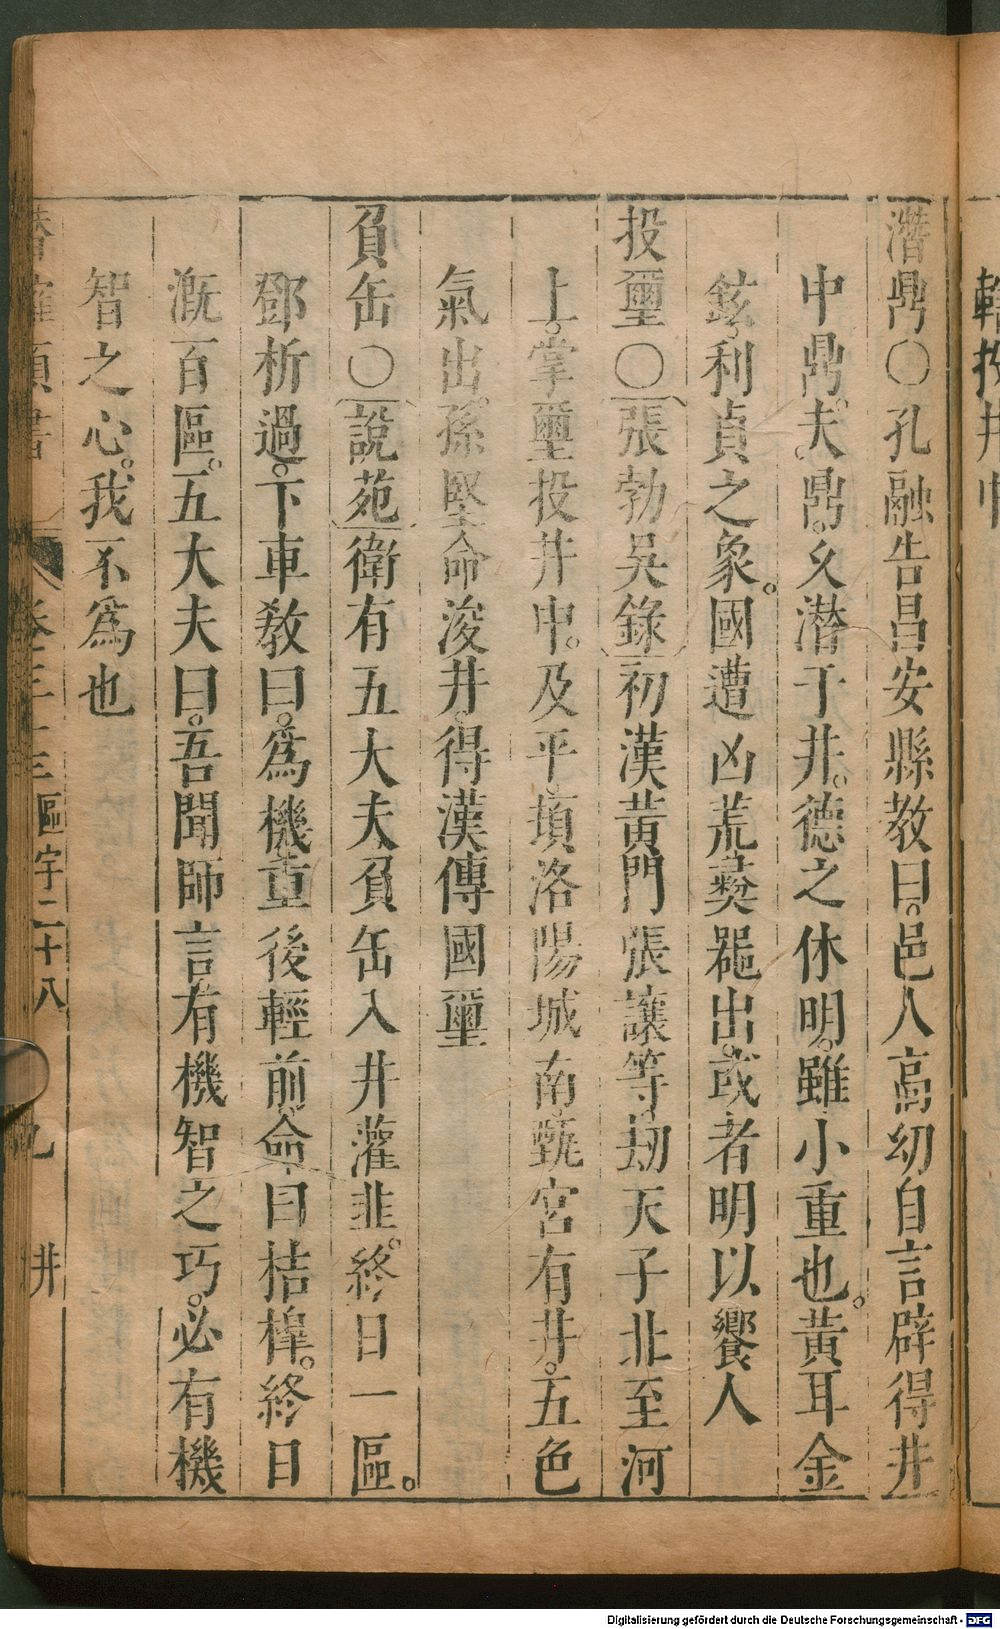 潛鼎○孔融告昌安縣教曰邑人高幼自言辟得井
中鼎夫鼎久潛于井德之休明雖小重也黃耳金
鉉利貞之象國遭凶荒彜器出或者明以饗人
投璽○張勃吳錄初漢黃門張讓等刼天子北至河
上掌璽投井中及平墳洛陽城南甄宮有井五色
氣出孫堅命浚井得漢傳國璽
負缶○說苑衛有五大夫負缶入井灌韭終日一區
鄧析過下車教曰爲機重後輕前命曰桔槹終日
漑百區五大夫曰吾聞師言有機智之巧必有機
智之心我不爲也
卷 區字二十八 九 井
Digitalisierung gefördert durch die Deutsche Forschungsgemeinschaft - DFG